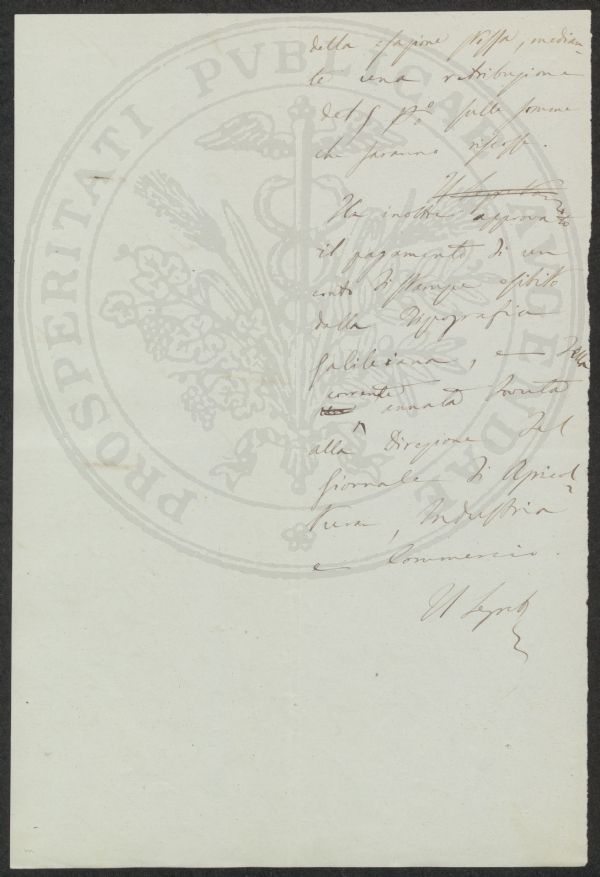 della esazione stessa, median-
te una retribuzione
del 5 p% sulle somme
che saranno riscosse.
Ha inoltre approvato
il pagamento di un
conto di stampe esibito
dalla Tipografia
Galileiana, e della
corrente annata dovuta
alla Direzione del
Giornale di Agricol-
tura, Industria
e Commercio.
Il Segret
PROSPERITATI PVBLICAE AVGENDAE